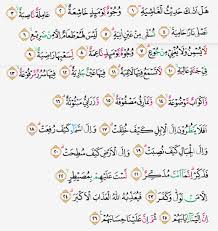 هَلْ أَتَاكَ حَدِيثُ الْغَاشِيَةِ ١ وُجُوهٌ يَوْمَئِذٍ خَاشِعَةٌ ٢ عَامِلَةٌ نَاصِبَةٌ ٣
تَصْلَى نَارًا حَامِيَةً ٤ تُسْقَى مِنْ عَيْنٍ آنِيَةٍ ٥ لَيْسَ لَهُمْ طَعَامٌ إِلَّا مِنْ ضَرِيعٍ ٦
لَا يُسْمِنُ وَلَا يُغْنِي مِنْ جُوعٍ ٧ وُجُوهٌ يَوْمَئِذٍ نَاعِمَةٌ ٨ لِسَعْيِهَا رَاضِيَةٌ ٩
فِي جَنَّةٍ عَالِيَةٍ ١٠ لَا تَسْمَعُ فِيهَا لَاغِيَةً ١١ فِيهَا عَيْنٌ جَارِيَةٌ ١٢ فِيهَا سُرُرٌ مَرْفُوعَةٌ ١٣
وَأَكْوَابٌ مَوْضُوعَةٌ ١٤ وَنَمَارِقُ مَصْفُوفَةٌ ١٥ وَزَرَابِيُّ مَبْثُوثَةٌ ١٦
أَفَلَا يَنْظُرُونَ إِلَى الْإِبِلِ كَيْفَ خُلِقَتْ ١٧ وَإِلَى السَّمَاءِ كَيْفَ رُفِعَتْ ١٨
وَإِلَى الْجِبَالِ كَيْفَ نُصِبَتْ ١٩ وَإِلَى الْأَرْضِ كَيْفَ سُطِحَتْ ٢٠
فَذَكِّرْ إِنَّمَا أَنْتَ مُذَكِّرٌ ٢١ لَسْتَ عَلَيْهِمْ بِمُصَيْطِرٍ ٢٢
إِلَّا مَنْ تَوَلَّى وَكَفَرَ ٢٣ فَيُعَذِّبُهُ اللَّهُ الْعَذَابَ الْأَكْبَرَ ٢٤
إِنَّ إِلَيْنَا إِيَابَهُمْ ٢٥ ثُمَّ إِنَّ عَلَيْنَا حِسَابَهُمْ ٢٦